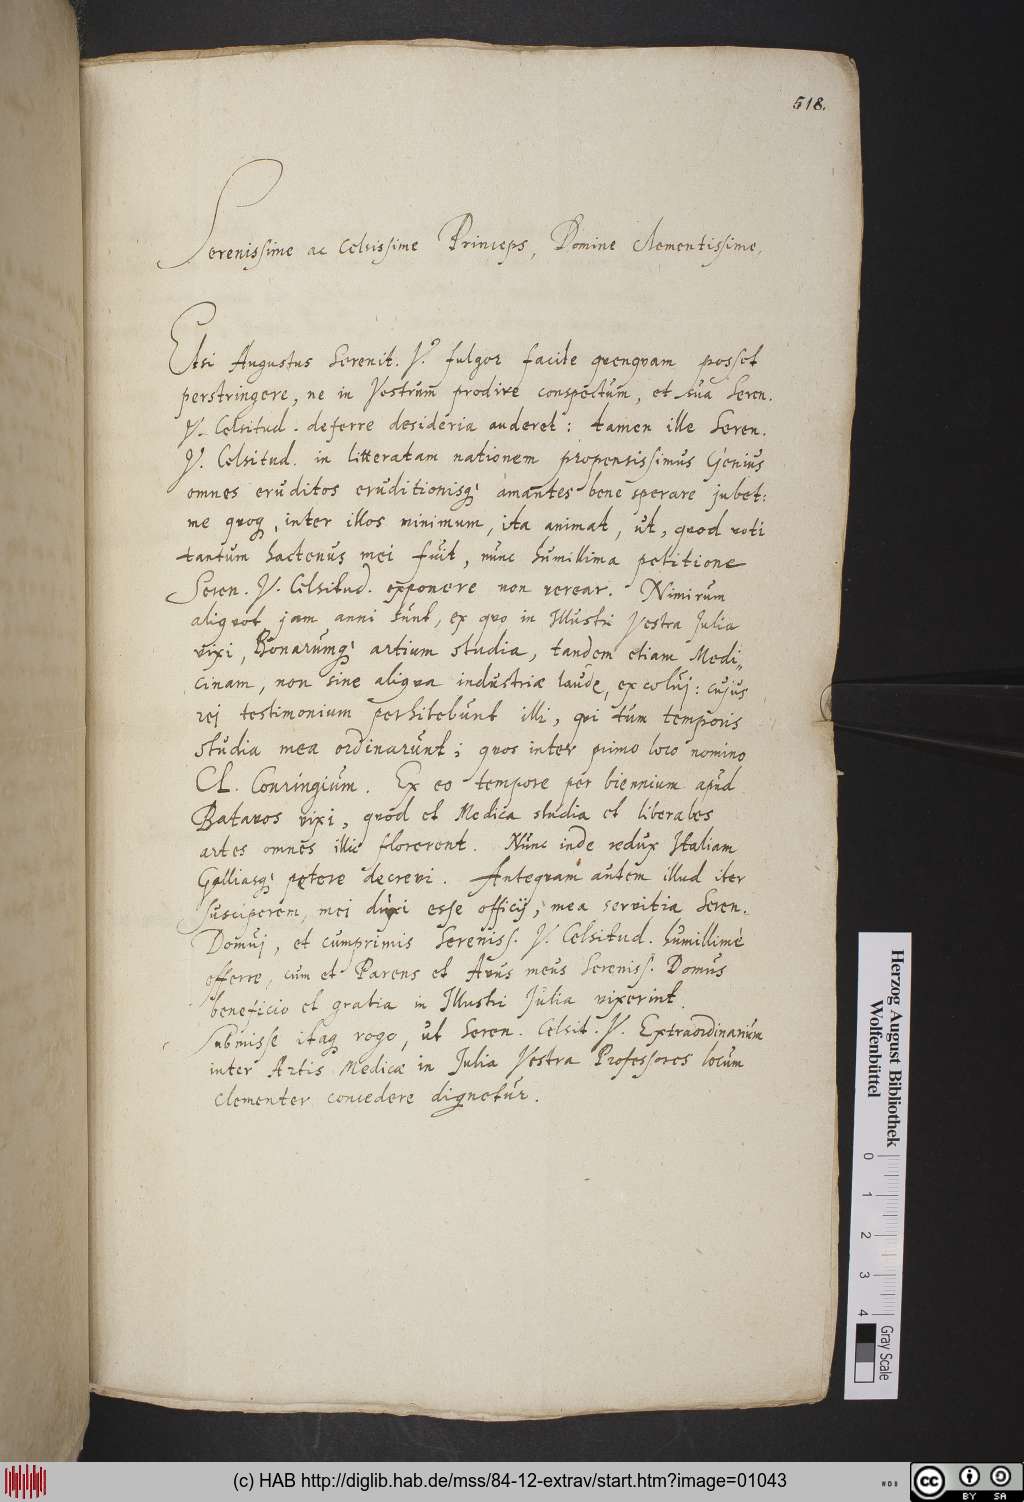 518.
Serenissime ac Celsissime Princeps, Domine Clementissime,
Etsi Augustus Serenit. V.ae fulgor facile quenquam posset
perstringere, ne in Vestrum prodire conspectum, et sua Seren.
V. Celsitud. deferre desideria auderet: tamen ille Seren.
V. Celsitud. in litteratam nationem propensissimus Genius
omnes eruditos eruditionisq; amantes bene sperare jubet:
me quoq, inter illos minimum, ita animat, ut, quod voti
tantum hactenus mei fuit, nunc humillima petitione
Seren. V. Celsitud. exponere non verear. Nimirum
aliquot jam anni sunt, ex quo in Illustri Vestra Julia
vixi, Bonarumq; artium studia, tandem etiam Medi„
cinam, non sine aliqua industriæ laude, excoluj: cujus
rej testimonium perhibebunt illi, qui tum temporis
studia mea ordinarunt; quos inter primo loco nomino
Cl. Conringium. Ex eo tempore per biennium apud
Batavos vixi, quod et Medica studia et liberales
artes omnes illic florerent. Nunc inde redux Italiam
Galliasq; petere decrevi. Antequam autem illud iter
susciperem, mei duxi esse officij, mea servitia Seren.
Domuj, et cumprimis Sereniss. V. Celsitud. humillimè
offerre, cum et Parens et Avus meus Sereniss. Domus
beneficio et gratia in Illustri Julia vixerint.
Submisse itaq rogo, ut Seren. Celsit. V. Extraordinarium
inter Artis Medicæ in Julia Vestra Professores locum
clementer concedere dignetur.
Herzog August Bibliothek
Wolfenbüttel
0 1 2 3 4
Gray Scale
(c) HAB http://diglib.hab.de/mss/84-12-extrav/start.htm?image=01043
cc BY SA